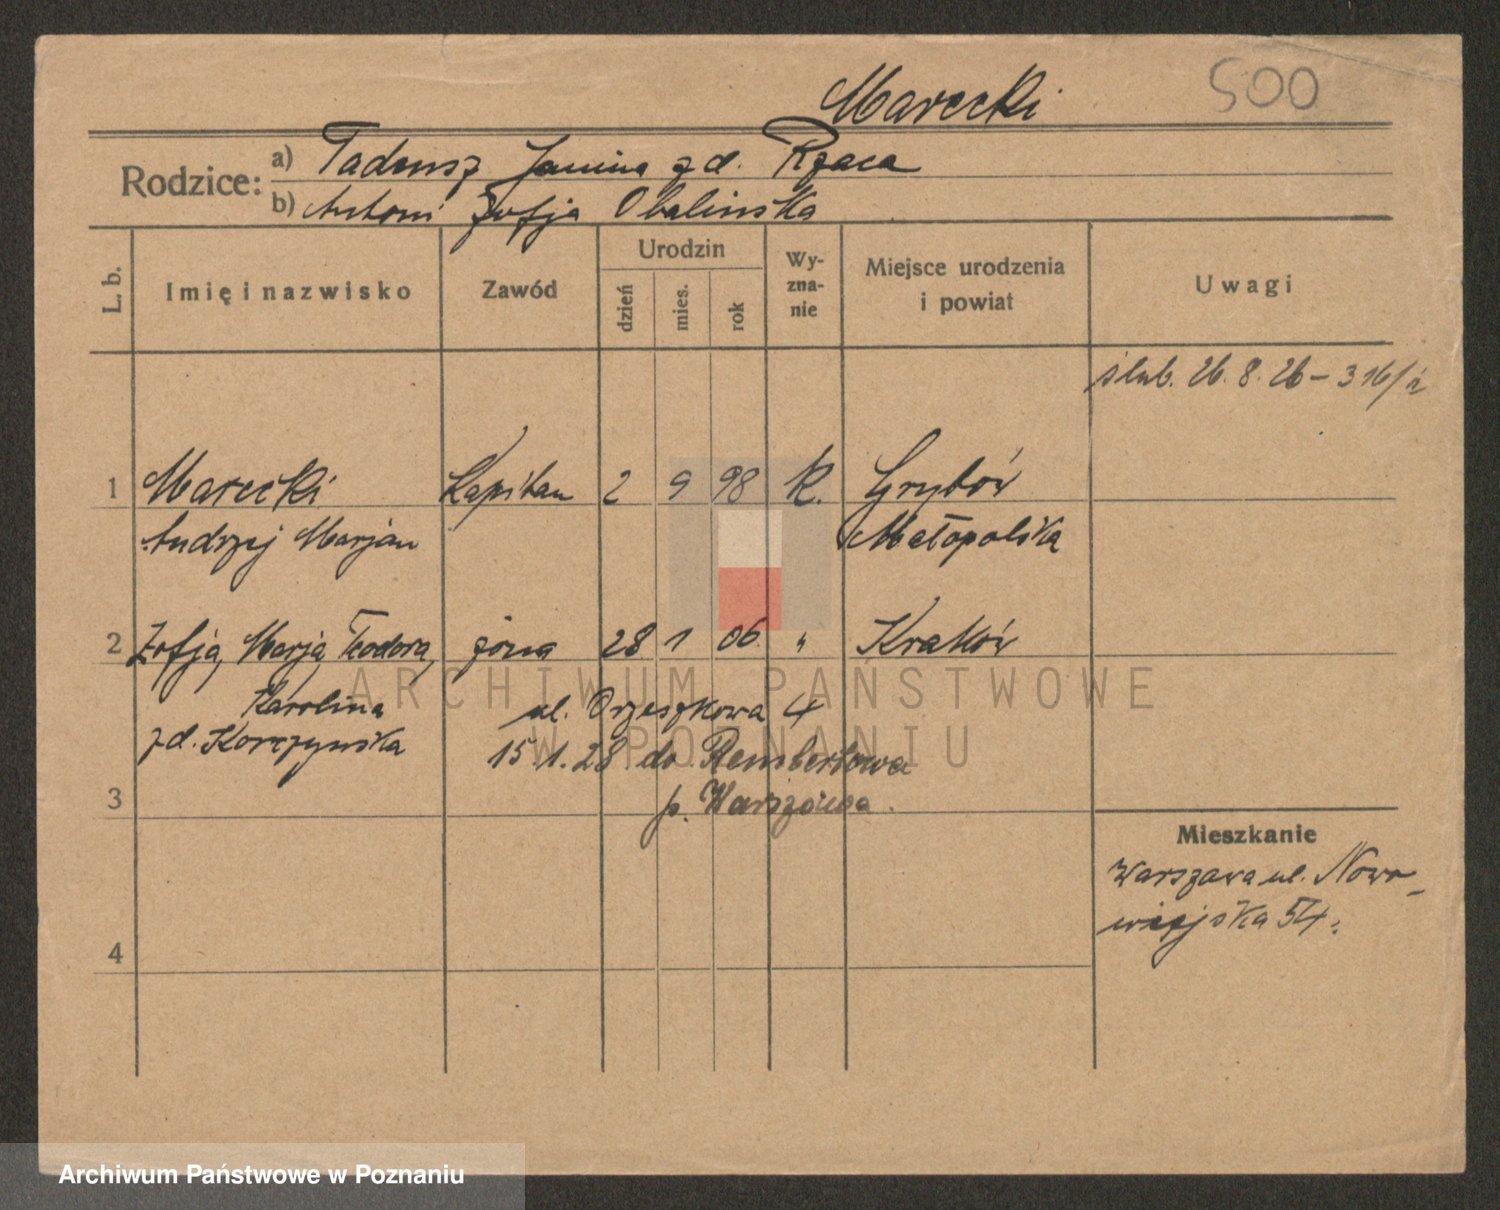 Marecki
500
Rodzice:
a) Tadeusz Janina z d. Rzaca
b) Antoni Zofja Obalinska
L. b.
Imię i nazwisko
Zawód
Urodzin
dzień
mies.
rok
Wy-
zna-
nie
Miejsce urodzenia
i powiat
Uwagi
ślub. 26. 8. 26 – 316/
1 Marecki Kapitan 2 9 98 R. Grybów
Andrzej Marjan Małopolska
2 Zofja, Marja, Teodora, żona 28 1 06 " Kraków
Karolina
z d. Korczynska
ul. Orzeszkowa 4
15.1.28 do Rembertowa
p. Warszawa.
3
Mieszkanie
Warszawa ul. Nowo-
wiejska 54.
4
ARCHIWUM PAŃSTWOWE
W POZNANIU
Archiwum Państwowe w Poznaniu